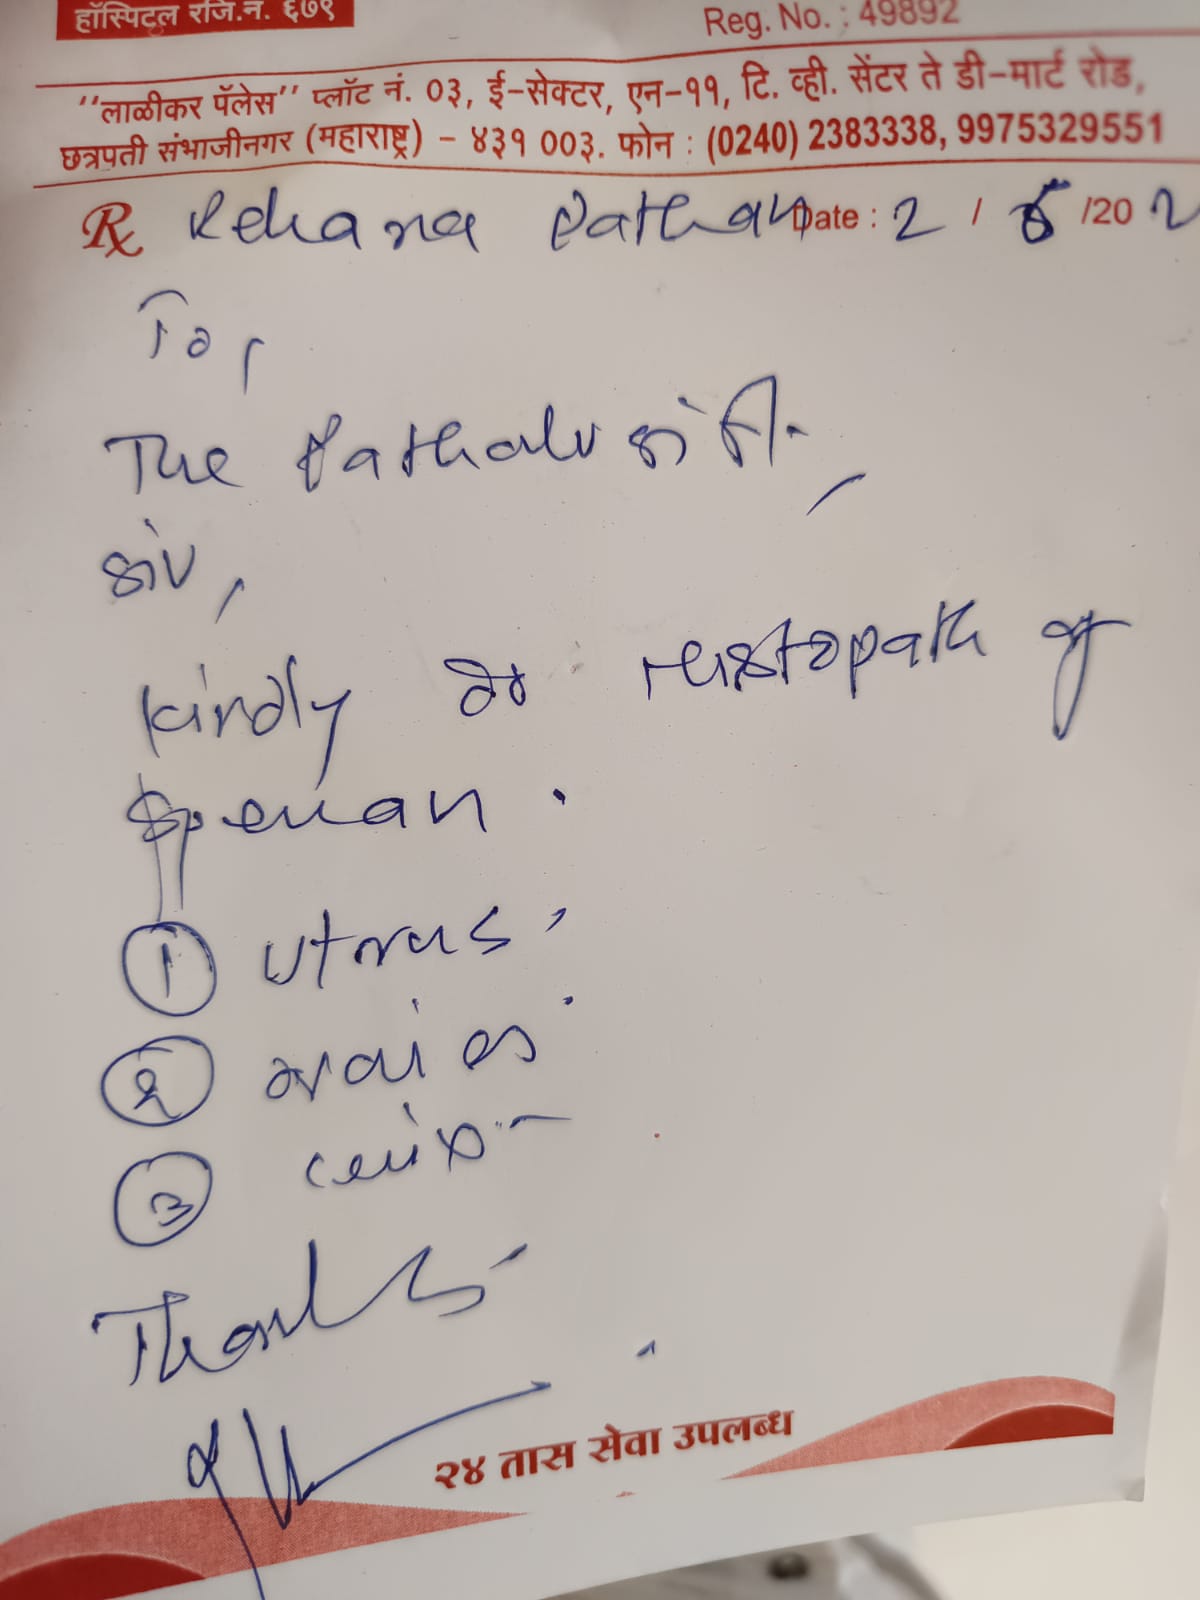 हॉस्पिटल रजि.नं. ६७९
Reg. No. : 49892
"लाळीकर पॅलेस" प्लॉट नं. 0३, ई-सेक्टर, एन-११, टि. व्ही. सेंटर ते डी-मार्ट रोड,
छत्रपती संभाजीनगर (महाराष्ट्र) - ४३१ 00३. फोन : (0240) 2383338, 9975329551
Rx Rehana Pathan Date : 2 / 6 /20 2
To,
The Pathalogist.
Sir,
Kindly do Histopath of
Speciman.
① Utrus.
② ovaries.
③ cervix
Thanks
२४ तास सेवा उपलब्ध